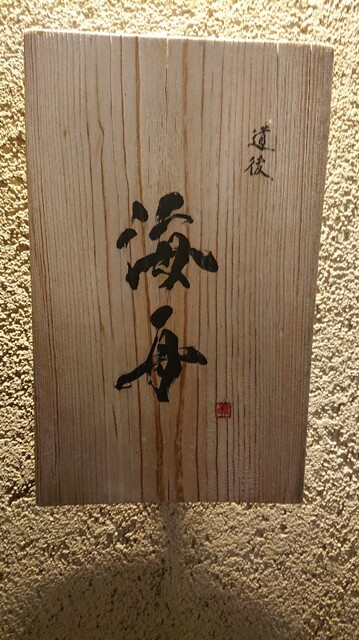 道後
海舟